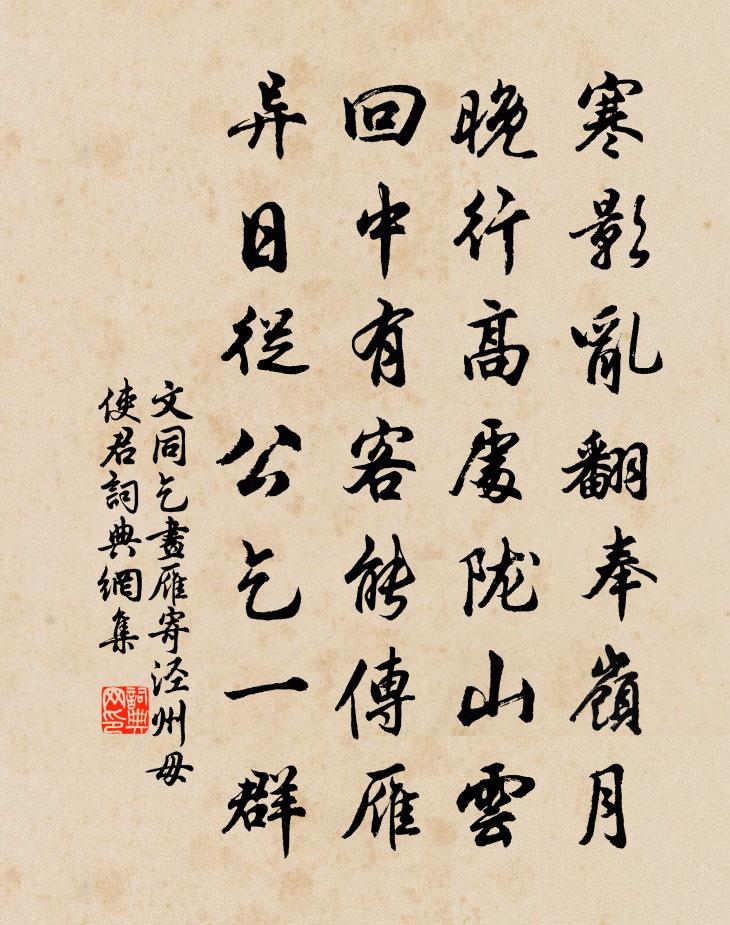 寒影亂翻奉嶺月
晚行高處陇山雲
回中有客能傳雁
异日從公乞一群
文同乞畫雁寄泾州毋
使君詞典網集
詞典网印